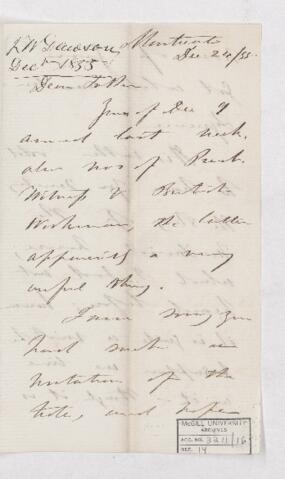 J W Dawson
Decr 1855
Montreal
Dec 24/55
Dear Father
Yours of Dec 7
arrived last week,
also nos of Presb.
Witness & British
Workman, the latter
apparently a very
useful thing.
I am sorry you
had such a
visitation of the
tête, and hope
McGILL UNIVERSITY
ARCHIVES
ACC. NO. 3211/16
REF. 14